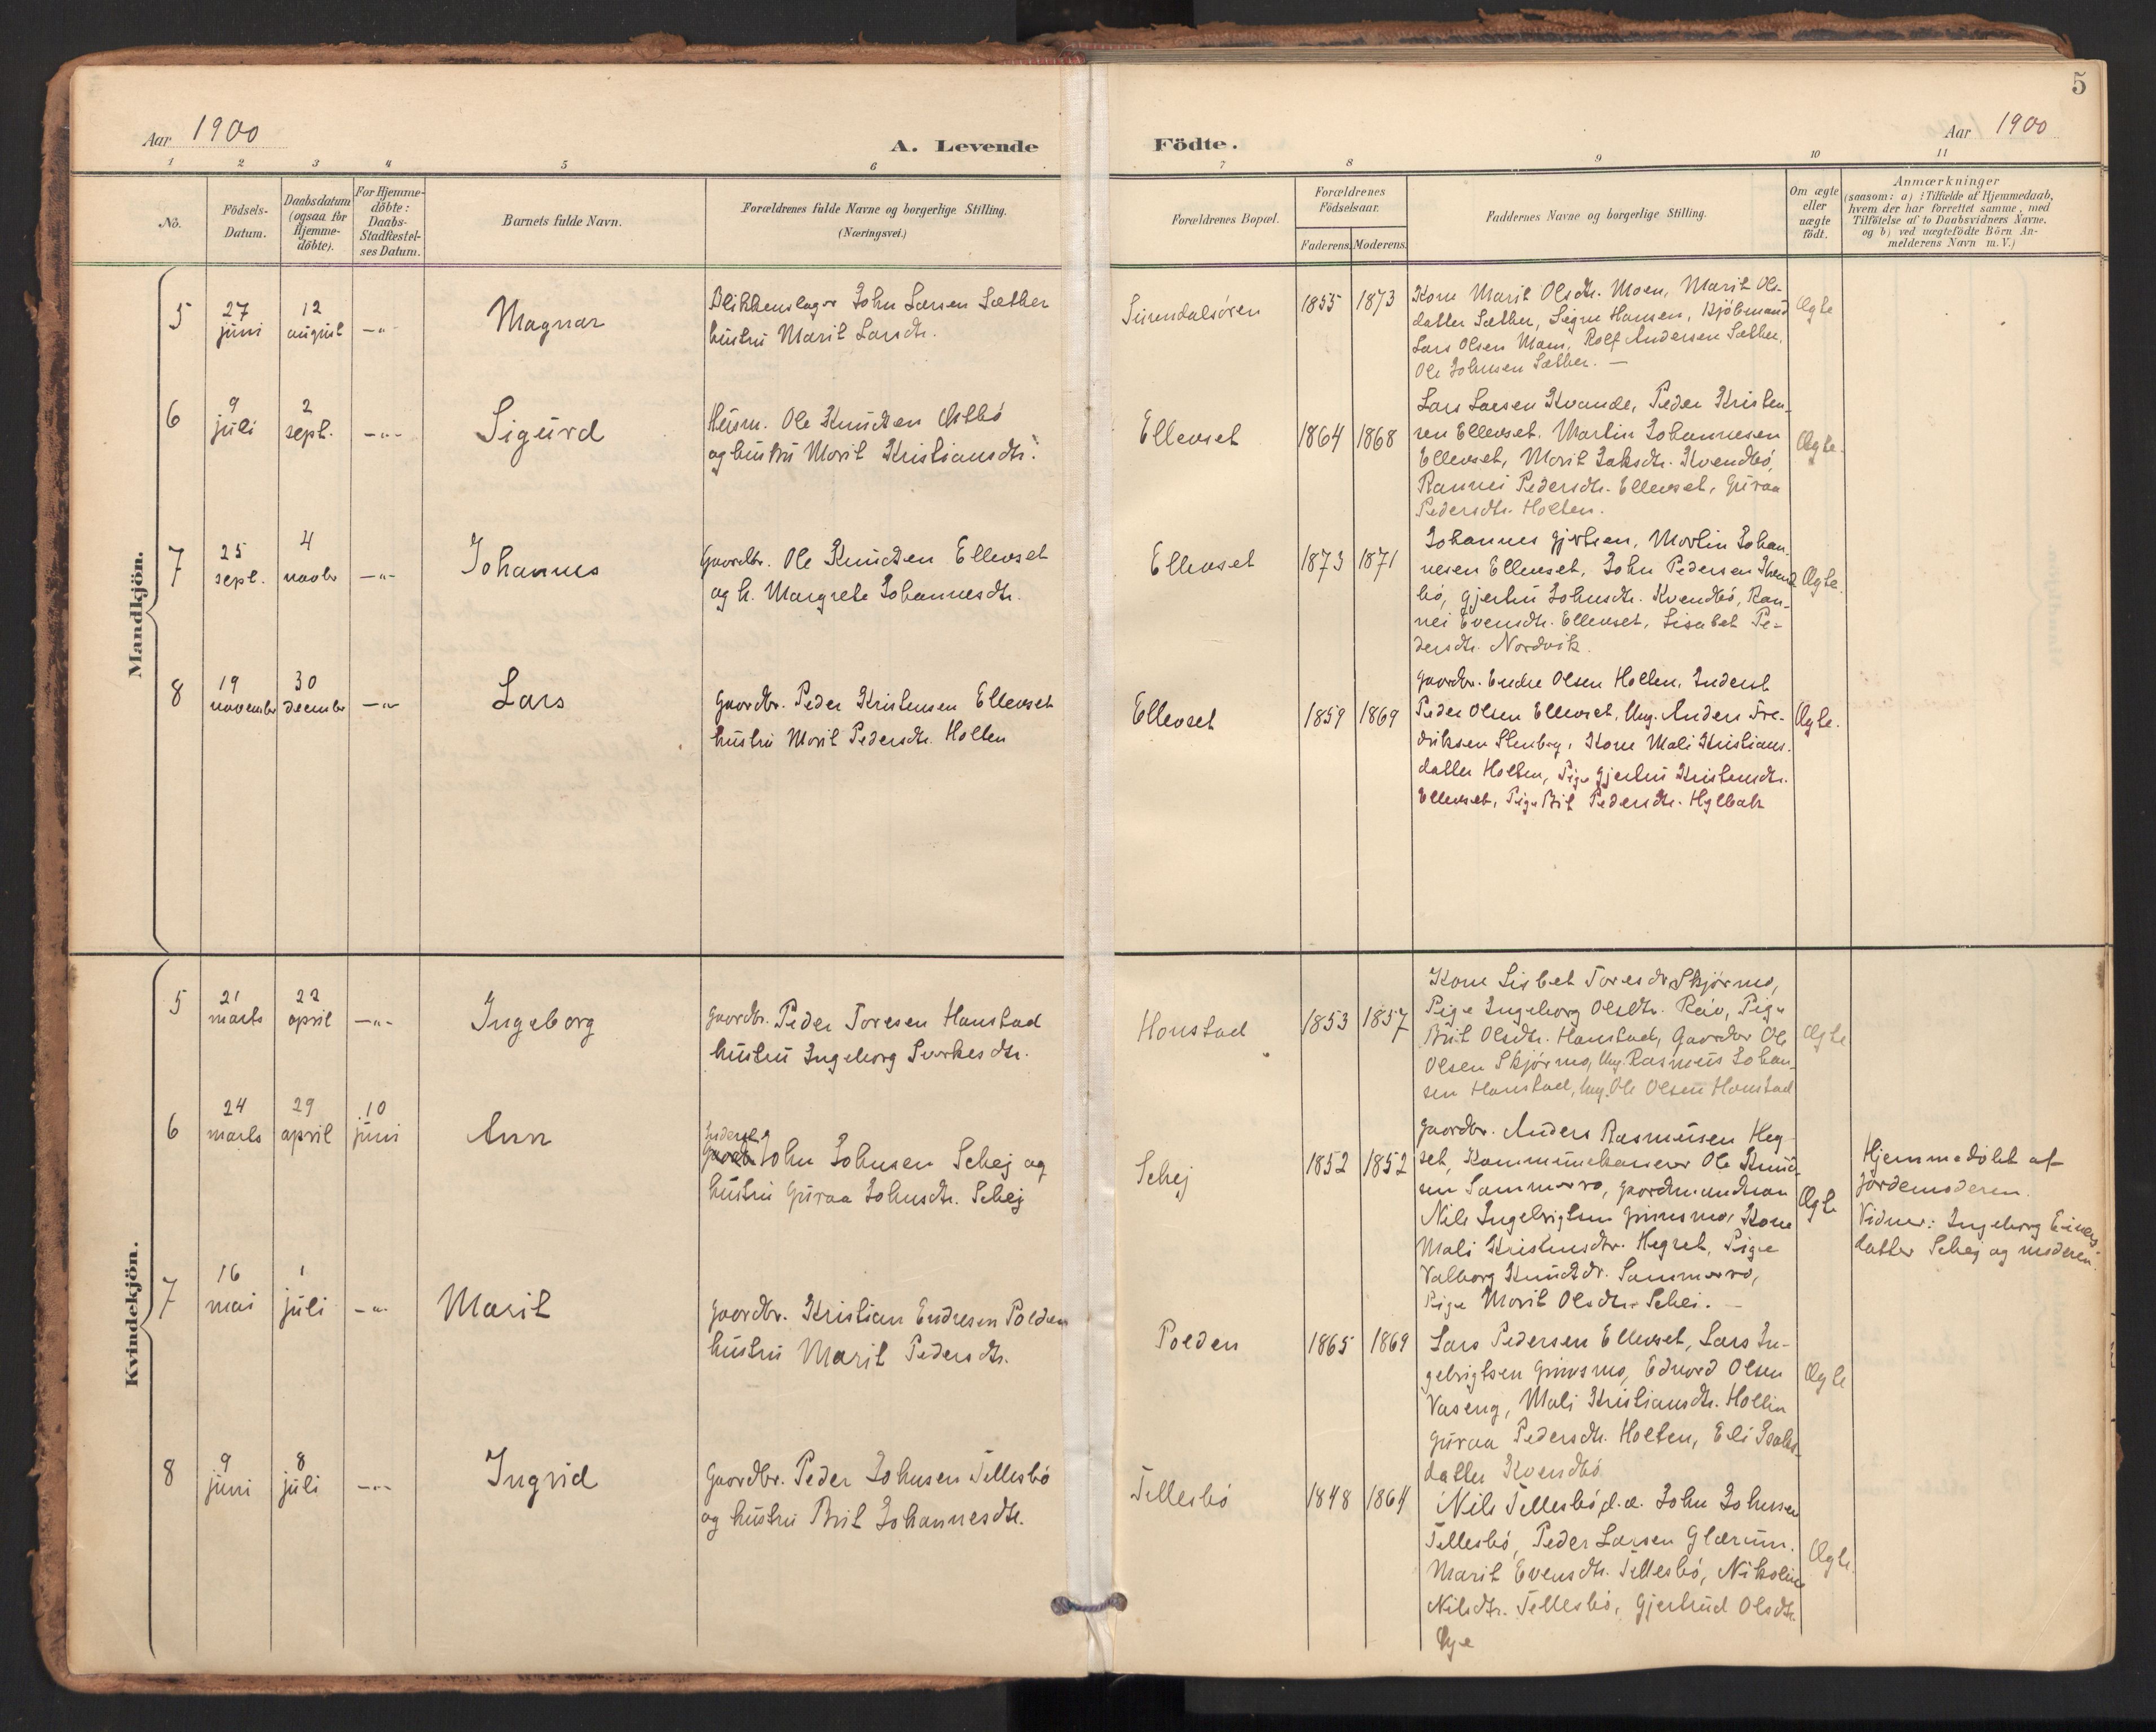 5
Aar 1900
A. Levende
Födte.
Aar 1900
1 2 3 4 5 6 7 8 9 10 11
No.
Födsels-
Datum.
Daabsdatum
(ogsaa for
Hjemme-
döbte).
For Hjemme-
döbte:
Daabs-
Stadfæstel-
ses Datum.
Barnets fulde Navn.
Forældrenes fulde Navne og borgerlige Stilling.
(Næringsvei.)
Forældrenes Bopæl.
Forældrenes
Födselsaar.
Faderens. Moderens.
Faddernes Navne og borgerlige Stilling.
Om ægte
eller
uægte
födt.
Anmærkninger
(saasom: a) i Tilfælde af Hjemmedaab,
hvem der har forrettet samme, med
Tilföielse af to Daabsvidners Navne,
og b) ved uægtefödte Börn An-
melderens Navn m. V.)
Mandkjön.
5
27
juni
12
august
-"-
Magnar
Blikkenslager John Larsen Sæther
hustru Marit Larsdtr.
Surendalsören
1855 1873
Kone Marit Olsdtr. Moen, Marit Ols-
datter Sæther, Signe Hansen, Kjöbmand
Lars Olsen Moen, Rolf Andersen Sæther,
Ole Johnsen Sæther. —
Ægte
6
9
juli
2
sept.
-"-
Sigurd
Husm. Ole Knudsen
og hustru Marit Kristiansdtr.
Ellevset
1864 1868
Lars Larsen Kvande, Peder Kristen-
sen Ellevset. Martin Johannesen
Ellevset, Marit Isaksdtr. Kvendbö,
Rannei Pedersdtr. Ellevset, Guraa
Pedersdtr. Holten.
Ægte.
7
25
sept.
4
novbr
-"-
Johannes
Gaardbr. Ole Knudsen Ellevset
og h. Margrete Johannesdtr.
Ellevset
1873 1871
Johannes Gjertsen, Martin Johan-
nesen Ellevset, John Pedersen Kvend-
bö, Gjertru Johnsdtr. Kvendbö, Ran-
nei Evensdtr. Ellevset, Lisabet Pe-
dersdtr. Nordvik.
Ægte.
8
19
november
30
december
-"-
Lars
Gaardbr. Peder Kristensen Ellevset
hustru Marit Pedersdtr. Holten
Ellevset
1859 1869
Gaardbr. Endre Olsen Holten, Inderst
Peder Olsen Ellevset, Ung. Anders Fre-
driksen Stenberg, Kone Mali Kristians-
datter Holten, Pige Gjertru Kristensdtr.
Ellevset, Pige Brit Pedersdtr. Hylbak
Ægte.
Kvindekjön.
5
21
marts
22
april
-"-
Ingeborg
Gaardbr. Peder Toresen Honstad
hustru Ingeborg Sverkesdtr.
Honstad
1853 1857
Kone Lisbet Toresdr. Skjørmo,
Pige Ingeborg Olsdtr. Röv, Pige
Brit Olsdtr. Honstad, Gaardbr Ole
Olsen Skjørmo, Ung. Rasmus Johan-
sen Honstad, Ung. Ole Olsen Honstad
Ægte
6
24
marts
29
april
10
juni
Ann
Inderst
Gaardb. John Johnsen Schej og
hustru Guraa Johnsdtr. Schej
Schej
1852 1852
Gaardbr. Anders Rasmussen Heg-
set, Kommunekasserer Ole Knud-
sen Sammoro, gaardmandssøn
Nils Ingebrigtsen Grimsmo, Kone
Mali Kristensdtr. Hegset, Pige
Valborg Knudsdr. Sammoro,
Pige Marit Olsdtr. Schei. —
Ægte
Hjemmedöbt af
Jordemoderen.
Vidner: Ingeborg Einers-
datter Schej og moderen.
7
16
mai
1
juli
-"-
Marit
Gaardbr. Kristian Endresen Polden
hustru Marit Pedersdtr.
Polden
1865 1869
Lars Pedersen Ellevset, Lars In-
gebrigtsen Grimsmo, Edvard Olsen
Vaseng, Mali Kristiansdtr. Holten
Guraa Pedersdtr. Holten, Eli Isaks-
datter Kvendbö
Ægte
8
9
juni
8
juli
-"-
Ingrid
Gaardbr. Peder Johnsen Tellesbö
og hustru Brit Johannesdtr.
Tellesbö
1848 1864
Nils Tellesbö d.æ. John Johnsen
Tellesbö, Peder Larsen Glærum.
Marit Evensdtr. Tellesbö, Nikoline
Nilsdtr. Tellesbö, Gjertrud Olsdtr.
Øye
Ægte.